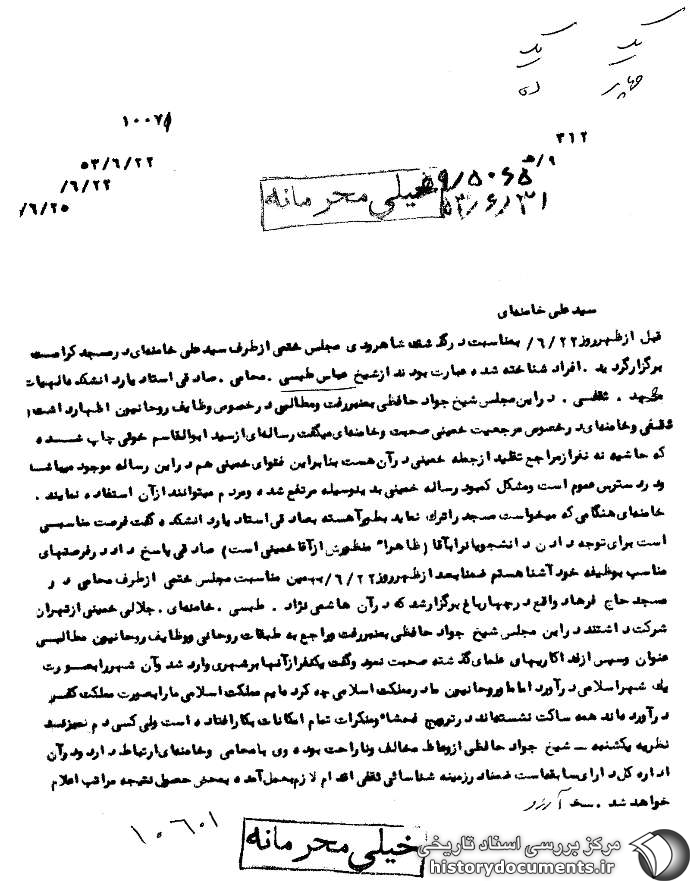 یک
یک
۱۰۰۷۱
۳۱۲
۵۳/۶/۲۲
/۶/۲۳
/۶/۲۵
ه۹/
۹/۵۰۶۵
۵۳/۶/۳۱
خیلی محرمانه
سید علی خامنه‌ای
قبل از ظهر روز ۶/۲۲/ بمناسبت درگذشت شاهرودی مجلس ختمی از طرف سید علی خامنه‌ای در مسجد کرامت
برگزار گردید . افراد شناخته شده عبارت بودند از شیخ عباس طبسی . محامی . صادقی استادیار دانشکده الهیات
مشهد . ثقفی . در این مجلس شیخ جواد حافظی بمنبر رفت و مطالبی در خصوص وظایف روحانیون اظهار داشت
ثقفی و خامنه‌ای در خصوص مرجعیت خمینی صحبت و خامنه‌ای میگفت رساله‌ای از سید ابوالقاسم خوئی چاپ شده
که حاشیه نه نفر از مراجع تقلید از جمله خمینی در آن هست بنابراین فتوای خمینی هم در این رساله موجود میباشد
و در دسترس عموم است و مشکل کمبود رساله خمینی بدینوسیله مرتفع شده و مردم میتوانند از آن استفاده نمایند .
خامنه‌ای هنگامی که میخواست مسجد را ترک نماید بطور آهسته بصادقی استادیار دانشکده گفت فرصت مناسبی
است برای توجه دادن دانشجویان را بآقا (ظاهراً منظورش از آقا خمینی است) صادقی پاسخ داد در فرصتهای
مناسب بوظیفه خود آشنا هستم ضمناً بعد از ظهر روز ۶/۲۲/ بهمین مناسبت مجلس ختمی از طرف محامی در
مسجد حاج فرهاد واقع در چهارباغ برگزار شد که در آن هاشمی نژاد . طبسی . خامنه‌ای . جلالی خمینی از تهران
شرکت داشتند در این مجلس شیخ جواد حافظی بمنبر رفت و راجع به طبقات روحانی و وظایف روحانیون مطالبی
عنوان و سپس از فداکاریهای علمای گذشته صحبت نمود و گفت یکنفر از آنها بر شهری وارد شد و آن شهر را بصورت
یک شهر اسلامی در آورد اما ما روحانیون ما در مملکت اسلامی چه کرده ایم مملکت اسلامی ما را بصورت مملکت کفر
در آورده اند همه ساکت نشسته‌اند در ترویج فحشاء و منکرات تمام امکانات بکار افتاده است ولی کسی دم نمیزند
نظریه یکشنبه – شیخ جواد حافظی از وعاظ مخالف و ناراحت بوده وی با محامی و خامنه‌ای ارتباط دارد و در آن
اداره کل دارای سابقه‌است ضمناً در زمینه شناسائی ثقفی اقدام لازم بعمل آمده بمحض حصول نتیجه مراتب اعلام
خواهد شد .
۱۰۶۰۱
خیلی محرمانه
مرکز بررسی اسناد تاریخی
historydocuments.ir